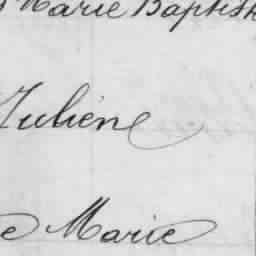 Marie Baptist
Juliene
e Marie